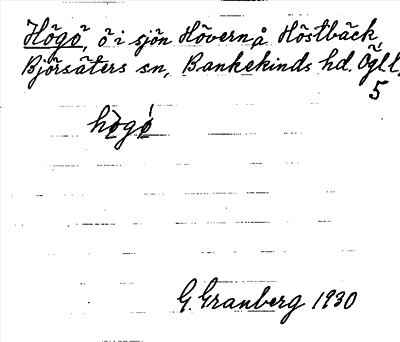 Högö, ö i sjön Hövern å Höstbäck
Björsäters sn, Bankekinds hd. Ögl.
5
högö
G. Granberg 1930